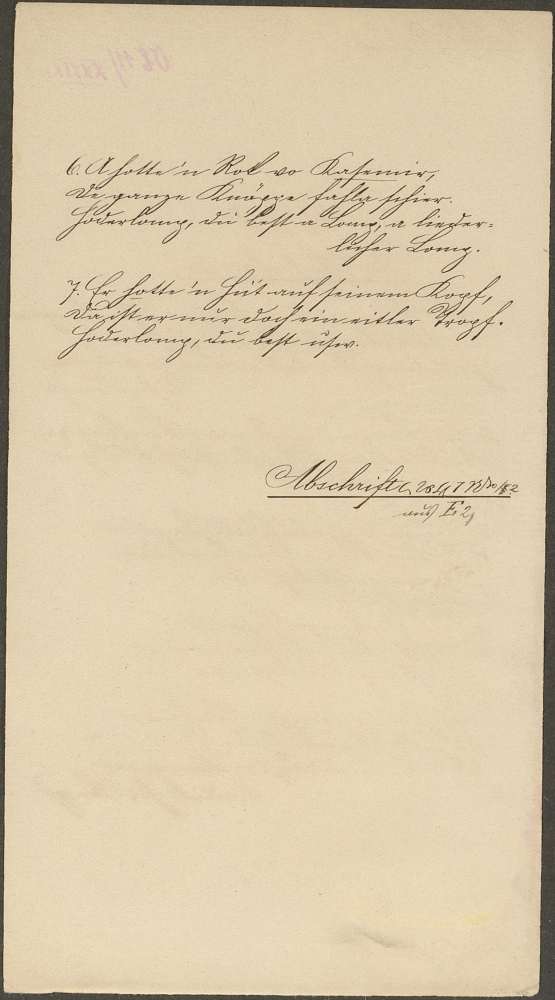 6. A hotte 'n Rok vo Kasemir,
De ganze Knöppe fahla schier.
Hoderlomp, du best a Lomp, a lieder=
licher Lomp.
7. Er hotte 'n Hut auf seinem Kopf,
Da ist er nur doch ein eitler Tropf.
Hoderlomp, du best usw.
Abschrift
aus E. 2,